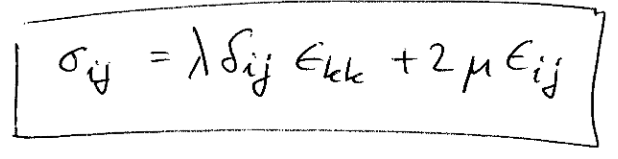 σij = λδij ϵkk + 2μϵij